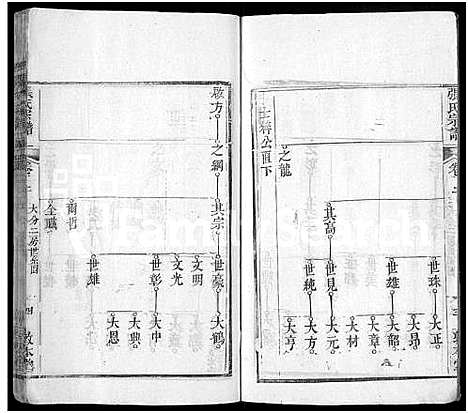 張氏宗譜
卷二
士梓公直下
之龍
其高
世珠
世見
世統
大正
大昂
大韶
大章
大材
大元
大方
大亨
啟方
之綱
其宗
爾哲
世豪
文明
文光
世彰
世雄
大鶴
大中
大興
大恩
張氏宗譜
卷二
大分二房世系圖
四
敦本堂